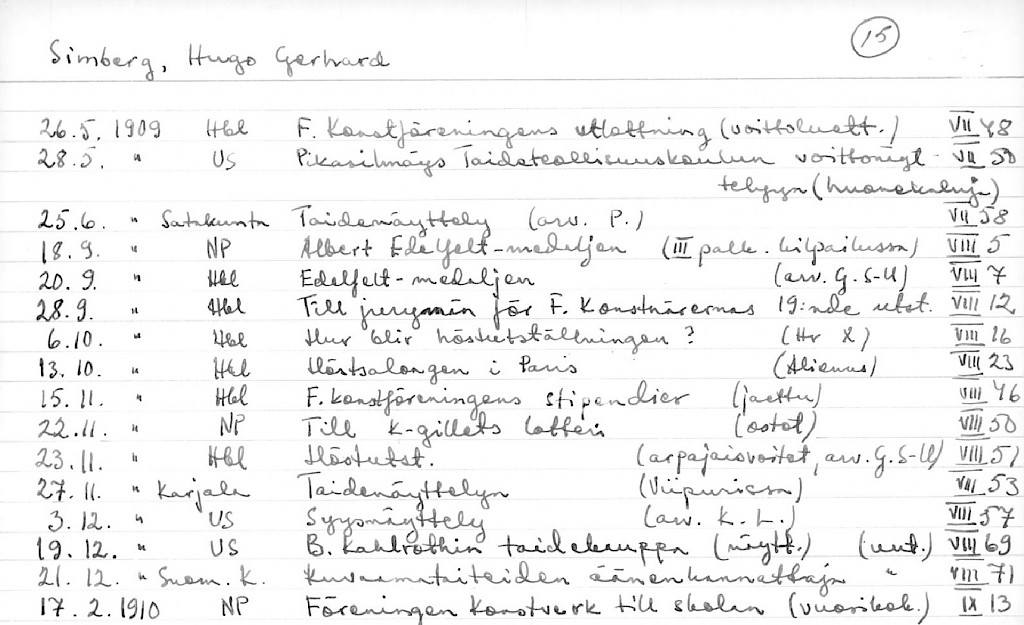 15
Simberg, Hugo Gerhard
26.5. 1909 Hbl F. Konstföreningens utlottning (voittoluett.) VII 48
28.5. " US Pikasilmäys Taideteollisuuskoulun voittonäyt- VII 50
telyyn (huonekaluja)
25.6. " Satakunta Taidenäyttely (arv. P.) VII 58
18.9. " NP Albert Edelfelt-medaljen (III palk. kilpailussa) VIII 5
20.9. " Hbl Edelfelt-medaljen (arv. G. S-ll) VIII 7
28.9. " Hbl Till jurymän för F. Konstnärernas 19:nde utst. VIII 12
6.10. " Hbl Hur blir höstutställningen? (Hr X) VIII 16
13.10. " Hbl Höstsalongen i Paris (Alienus) VIII 23
15.11. " Hbl F. konstföreningens stipendier (jaettu) VIII 46
22.11. " NP Till k-gillets lotteri (ostot) VIII 50
23.11. " Hbl Höstutst. (arpajaisvoitot, arv. G. S-ll) VIII 51
27.11. " Karjala Taidenäyttelyn (Viipurissa) VIII 53
3.12. " US Syysnäyttely (arv. K. L.) VIII 57
19.12. " US B. Kahlrothin taidekauppa (näytt.) (uut.) VIII 69
21.12. " Suom. K. Kuvaamataiteiden äänenkannattaja " VIII 71
17.2.1910 NP Föreningen Konstverk till skolan (vuosikok.) IX 13